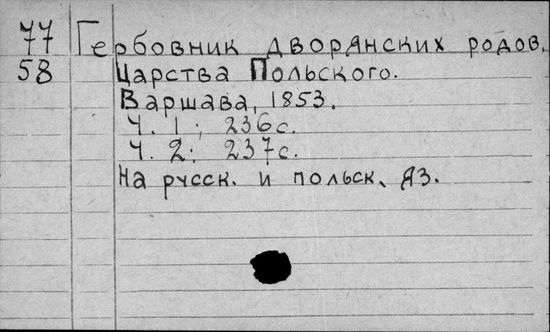 77 Гербовник дворянских родов.
58 Царства Польского.
Варшава, 1853.
Ч. 1; 236 с.
Ч. 2; 237 с.
На русск. и польск. яз.